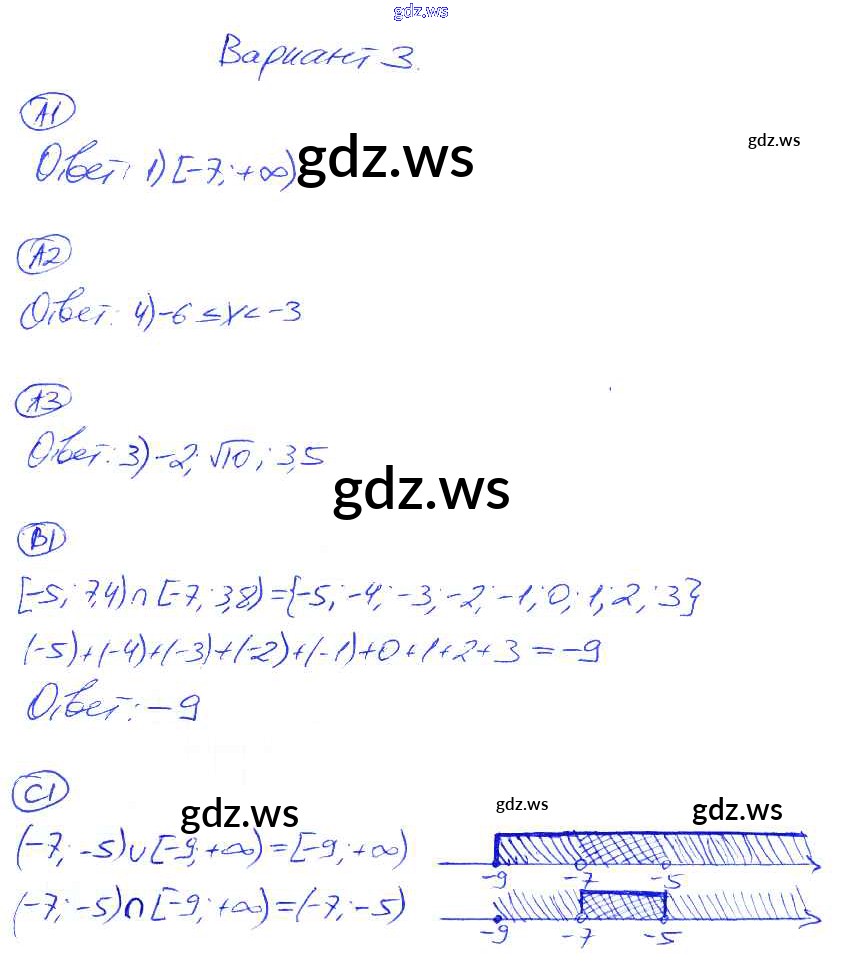 gdz.ws
Вариант 3.
А1
Ответ: 1) [-7; +∞) gdz.ws
gdz.ws
А2
Ответ: 4) -6 ≤ x < -3
А3
Ответ: 3) -2; √10; 3,5
gdz.ws
В1
[-5; 7,4) ∩ [-7; 3,8) = {-5; -4; -3; -2; -1; 0; 1; 2; 3}
(-5)+(-4)+(-3)+(-2)+(-1)+0+1+2+3 = -9
Ответ: -9
С1
gdz.ws
gdz.ws
gdz.ws
(-7; -5) ∪ [-9; +∞) = [-9; +∞)
-9 -7 -5
(-7; -5) ∩ [-9; +∞) = (-7; -5)
-9 -7 -5